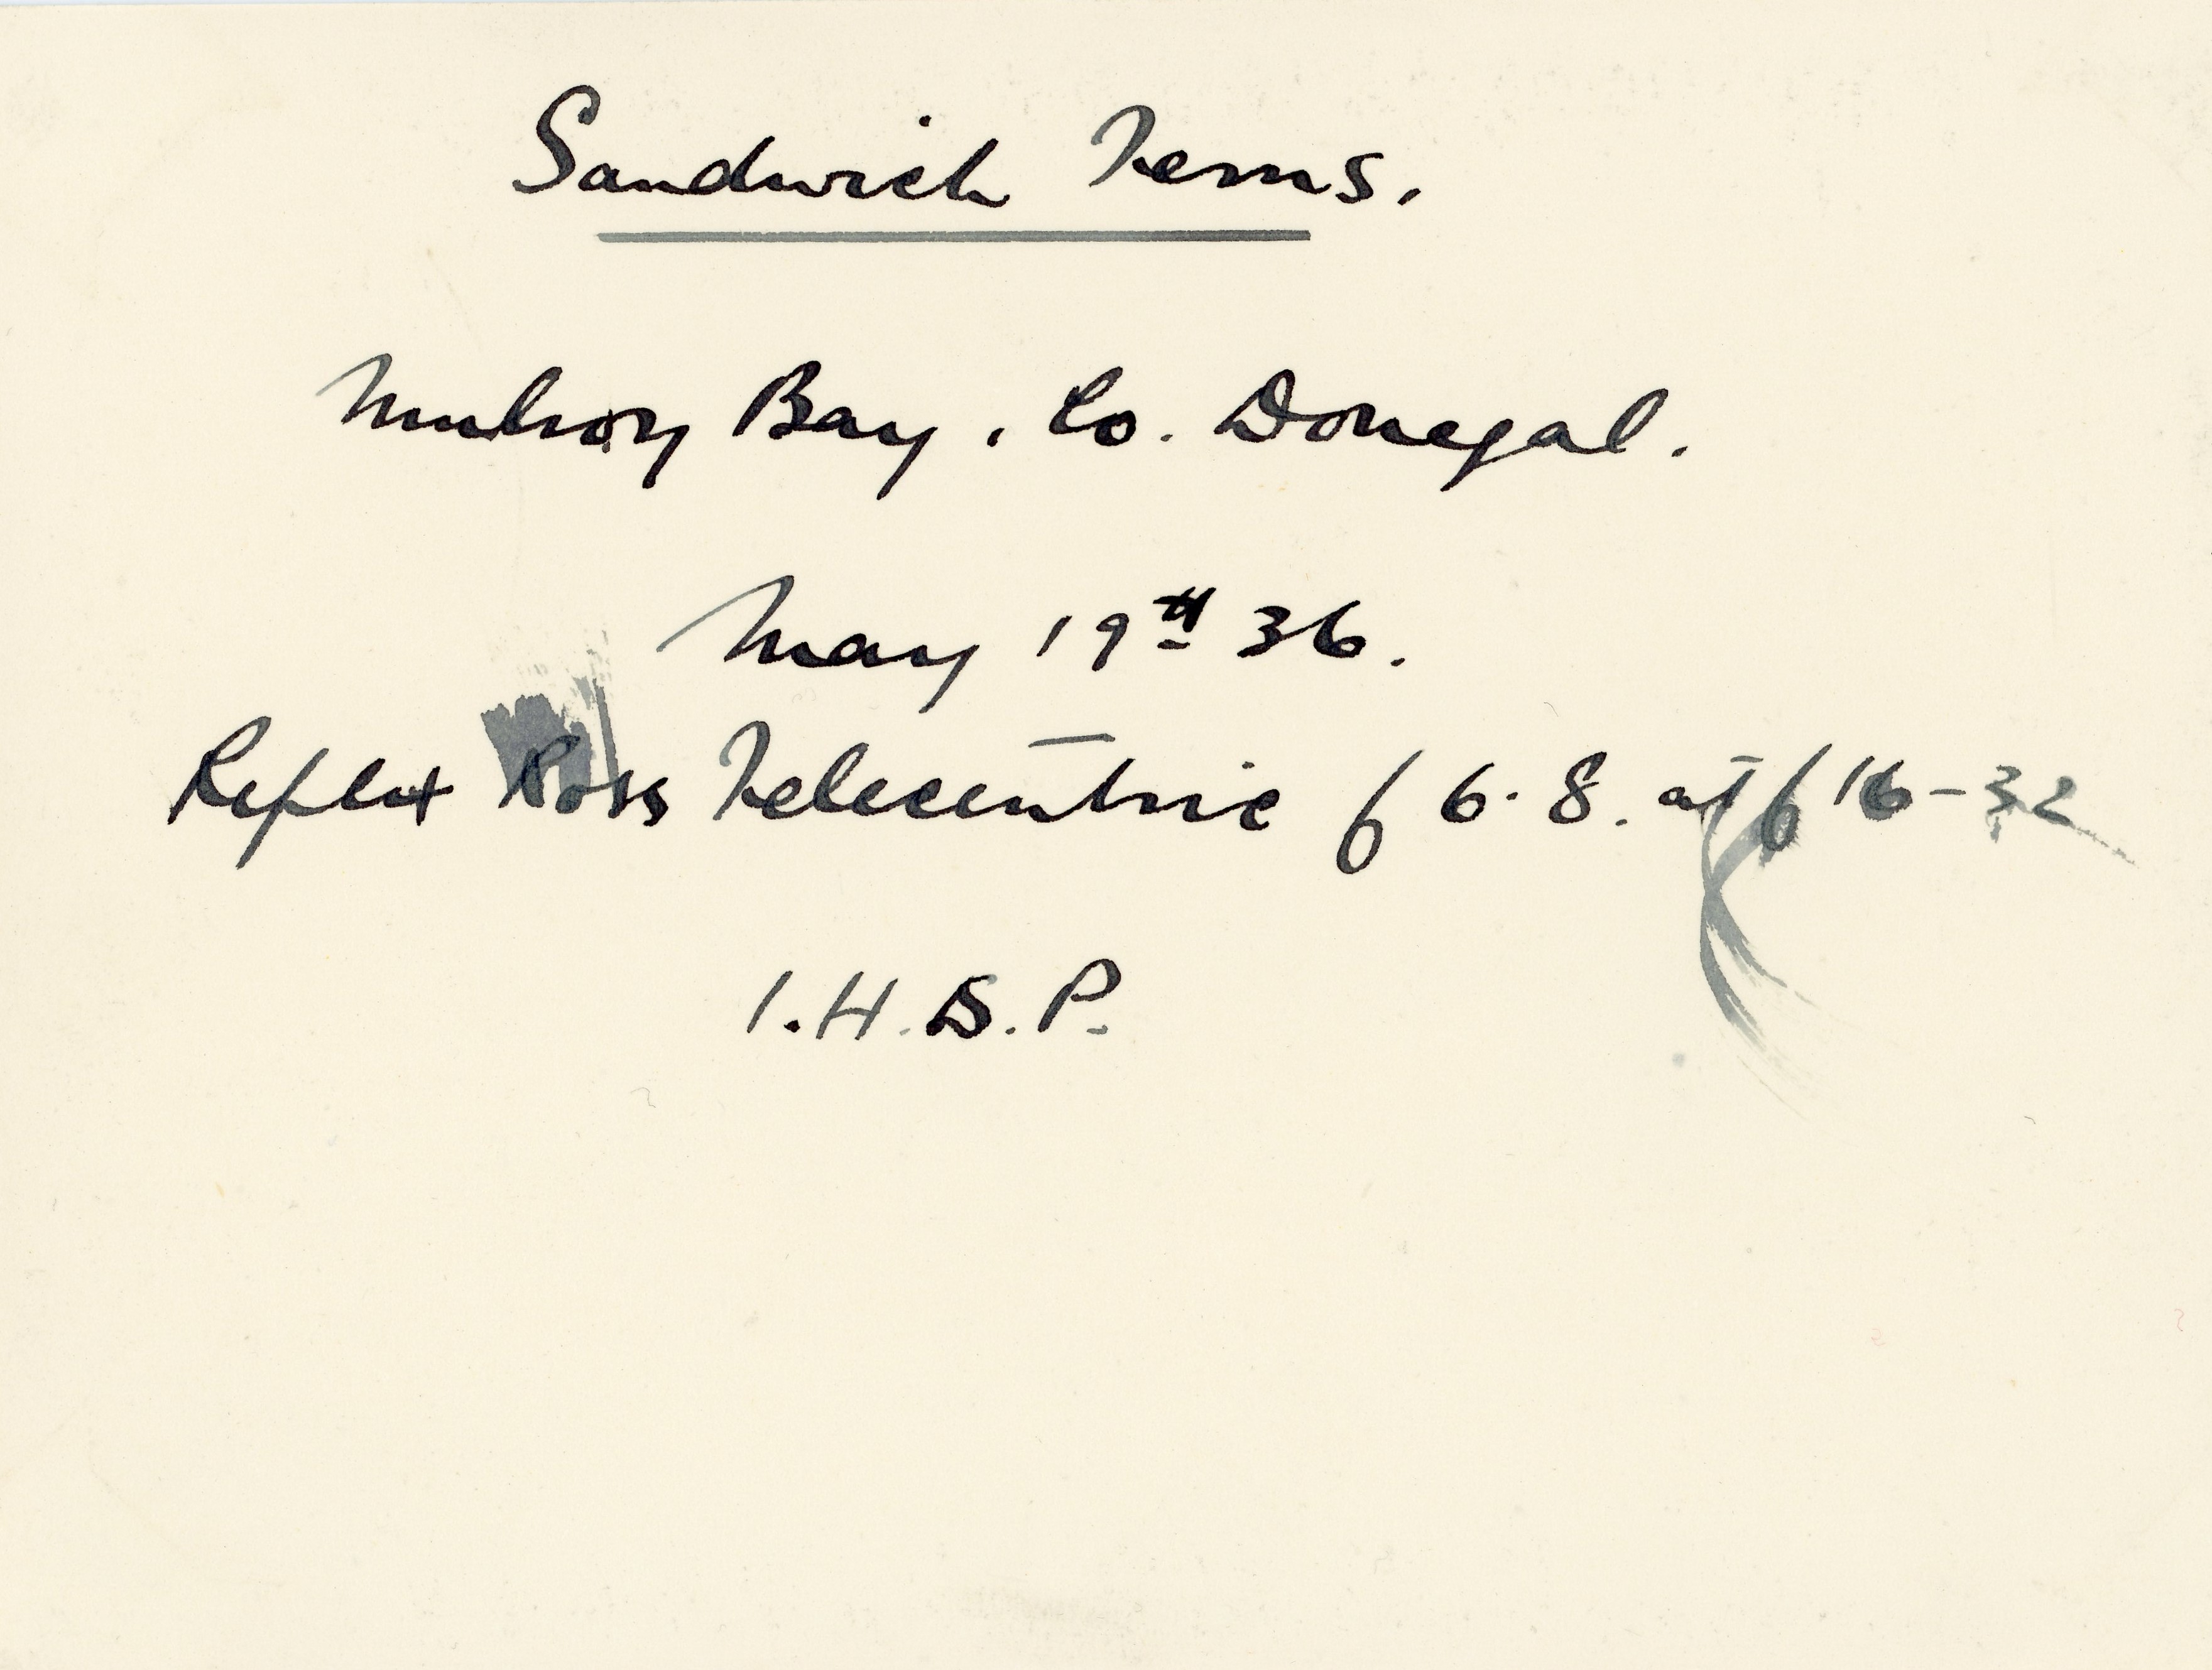 Sandwich Terns.
Mulroy Bay, Co. Donegal.
May 19th 36.
Reflex Ross Telecentric f 6.8. at f 16-32
I.H.S.P.